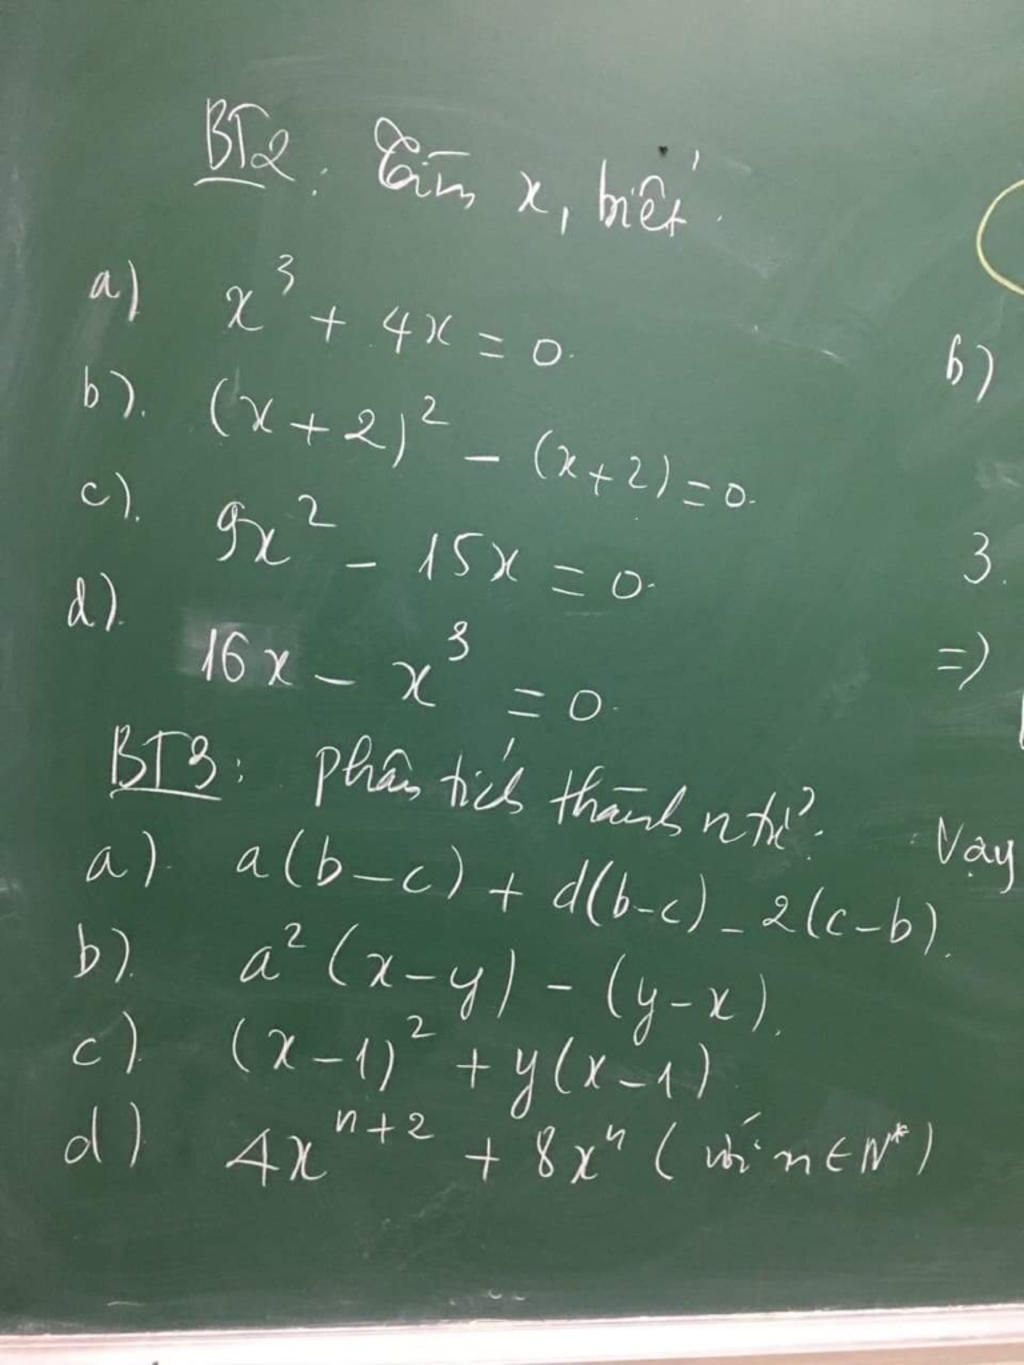 BT2: Tìm x, biết
a) x³ + 4x = 0.
b). (x+2)² - (x+2) = 0.
c). 9x² - 15x = 0.
d). 16x - x³ = 0.
BT3: phân tích thành ntử?
a). a(b-c) + d(b-c) - 2(c-b).
b). a²(x-y) - (y-x).
c). (x-1)² + y(x-1)
d) 4xⁿ⁺² + 8xⁿ (với n∈N*)
b)
3.
=)
Vậy